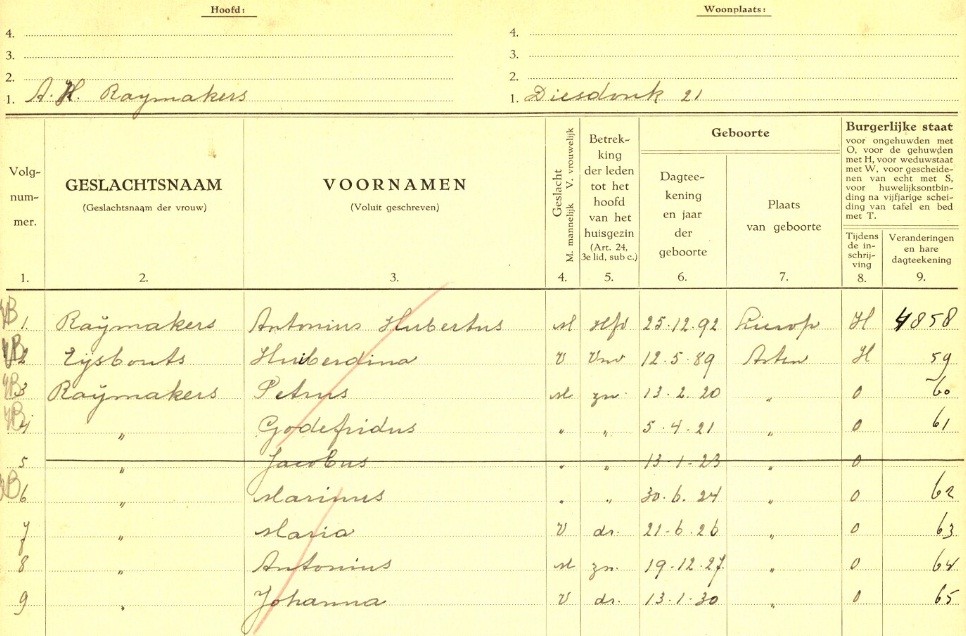 Hoofd: Woonplaats:
4. 4.
3. 3.
2. 2.
1. A. H. Raymakers 1. Diesdonk 21
Volg-
num-
mer.
GESLACHTSNAAM
(Geslachtsnaam der vrouw)
VOORNAMEN
(Voluit geschreven)
Geslacht
M. mannelijk V. vrouwelijk
Betrek-
king
der leden
tot het
hoofd
van het
huisgezin
(Art. 24,
3e lid, sub c.)
Geboorte
Dagtee-
kening
en jaar
der
geboorte
Plaats
van geboorte
Burgerlijke staat
voor ongehuwden met
O, voor de gehuwden
met H, voor weduwstaat
met W, voor gescheide-
nen van echt met S,
voor huwelijksontbin-
ding na vijfjarige schei-
ding van tafel en bed
met T.
Tijdens
de in-
schrij-
ving
Veranderingen
en hare
dagteekening
1. 2. 3. 4. 5. 6. 7. 8. 9.
VB 1 Raÿmakers Antonius Hubertus M Hfd 25.12.92 Lierop H 4858
VB 2 Eijsbouts Huiberdina V Vrw 12.5.89 Asten H 59
VB 3 Raÿmakers Petrus M zn. 13.2.20 " O 60
VB 4 " Godefridus " " 5.4.21 " O 61
5 " Jacobus " " 13.1.23 " O
VB 6 " Marinus " " 30.6.24 " O 62
7 " Maria V dr. 21.6.26 " O 63
8 " Antonius M zn. 19.12.27 " O 64
9 " Johanna V dr. 13.1.30 " O 65